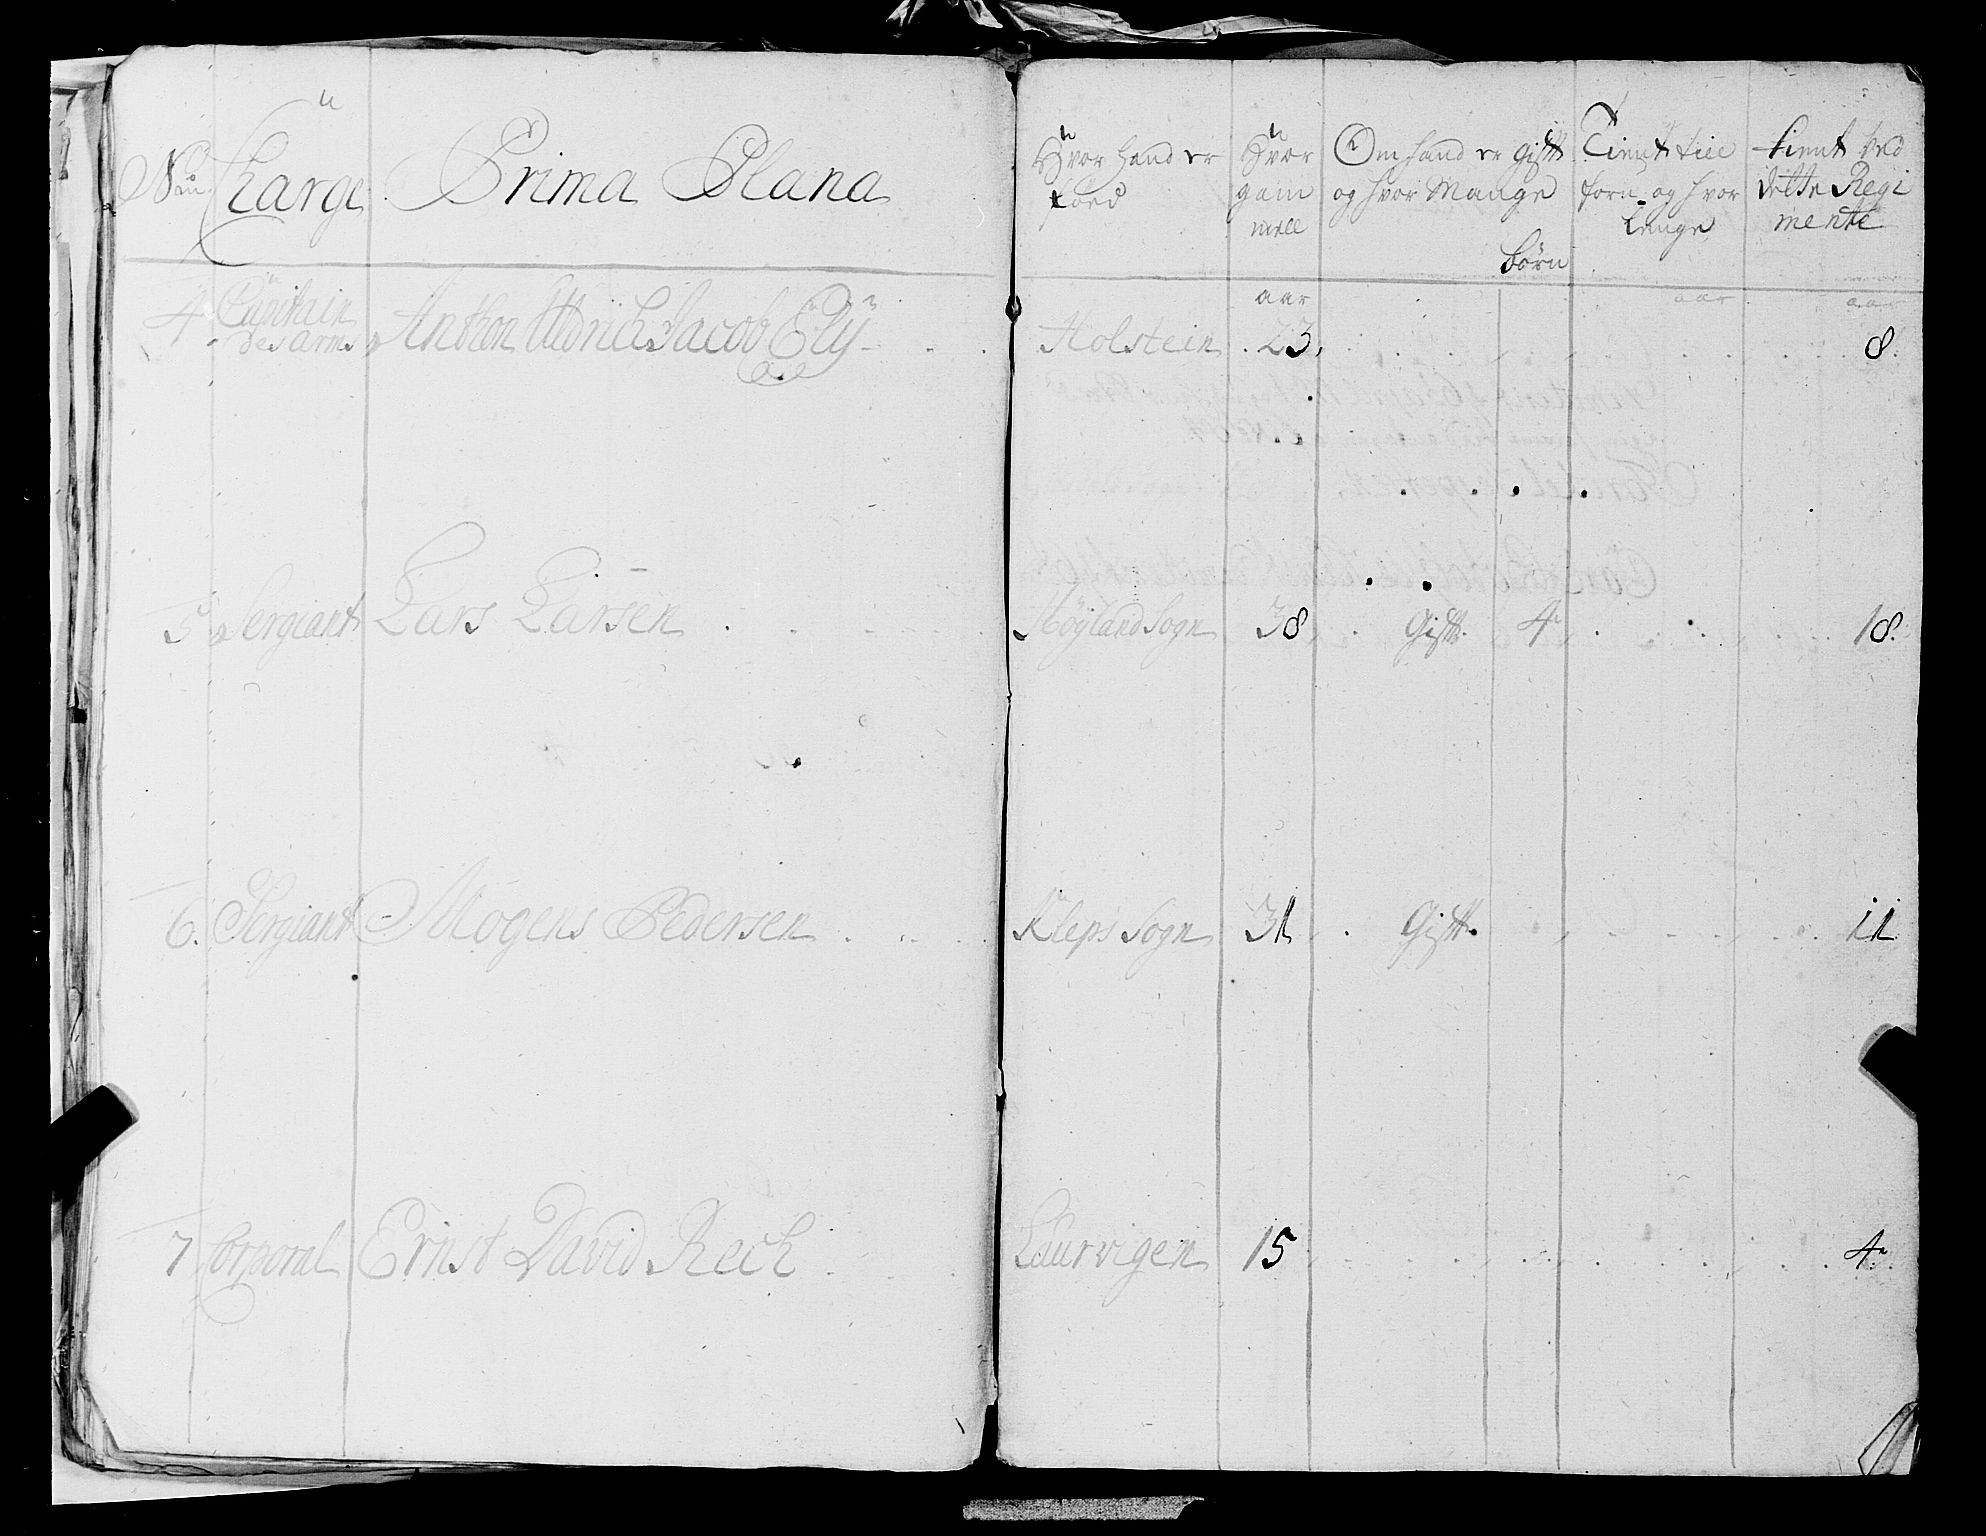 Nu. Charge Prima Plana
Hvor hand er foed
Hvor gam mell
Om hand er gift og hvor Mange børn
Tient till forn og hvor lenge
tient ved dette Regi mente
aar aar aar
4 Capitain des arms Anthon Uldrich Jacob Ely Holstein 23 8
5 Sergiant Lars Larsen Høyland Sogn 38 Gift 4 18
6. Sergiant Mogens Pedersen Kleps Sogn 31 Gift 11
7 Corporal Ernst David Rech Laurvigen 15 4